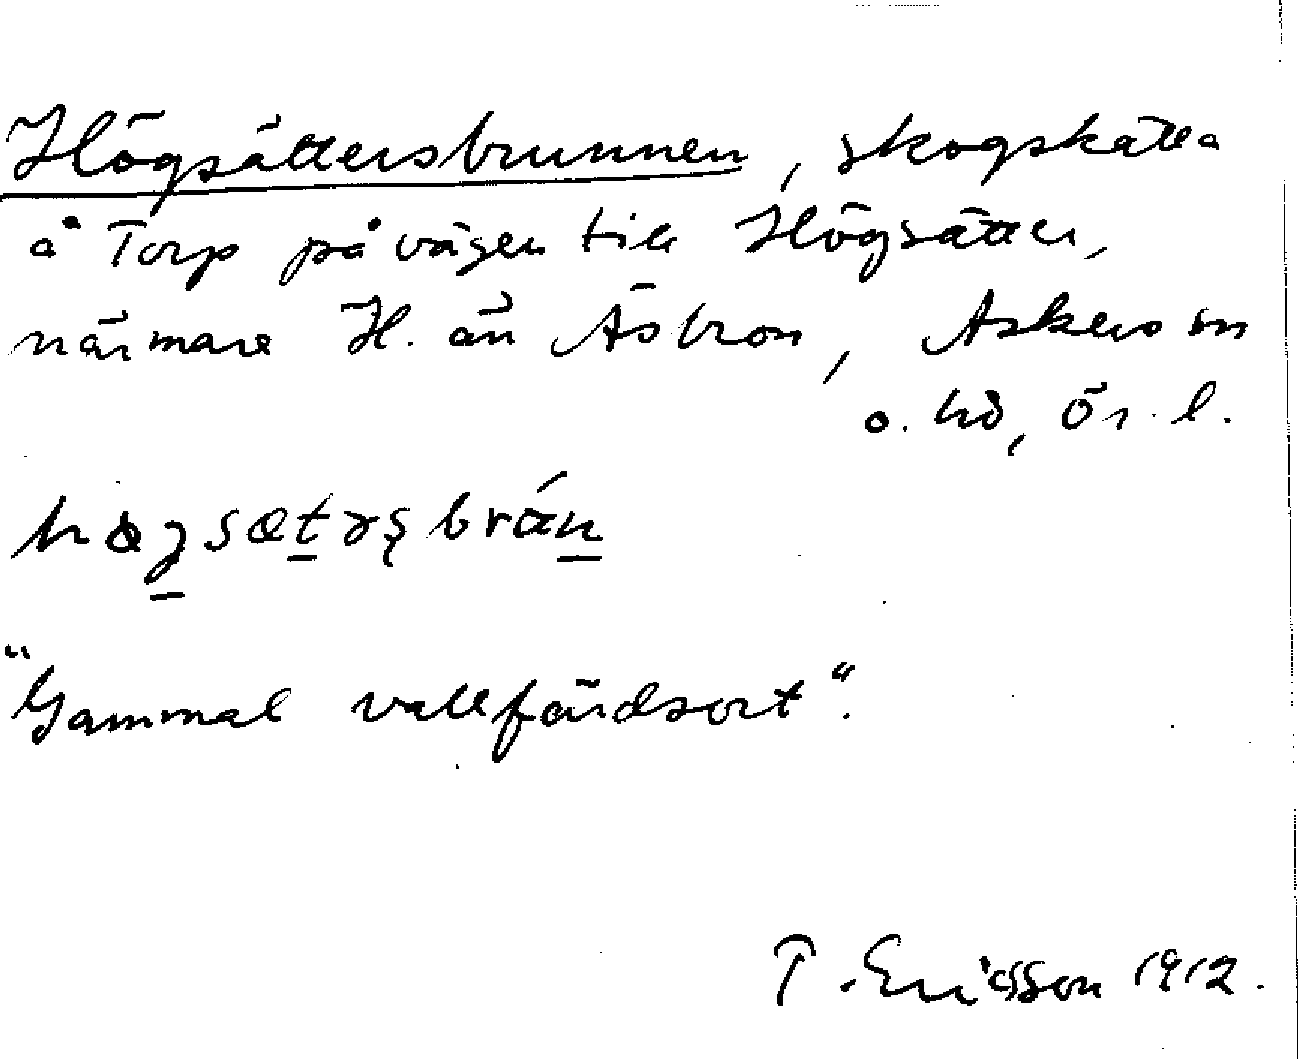 Högsättersbrunnen, skogskälla
å Torp på vägen till Högsätter,
närmare H. än Åsbron, Askers sn
o. hd, Ör. l.
"Gammal vallfärdsort".
T. Ericsson 1912.